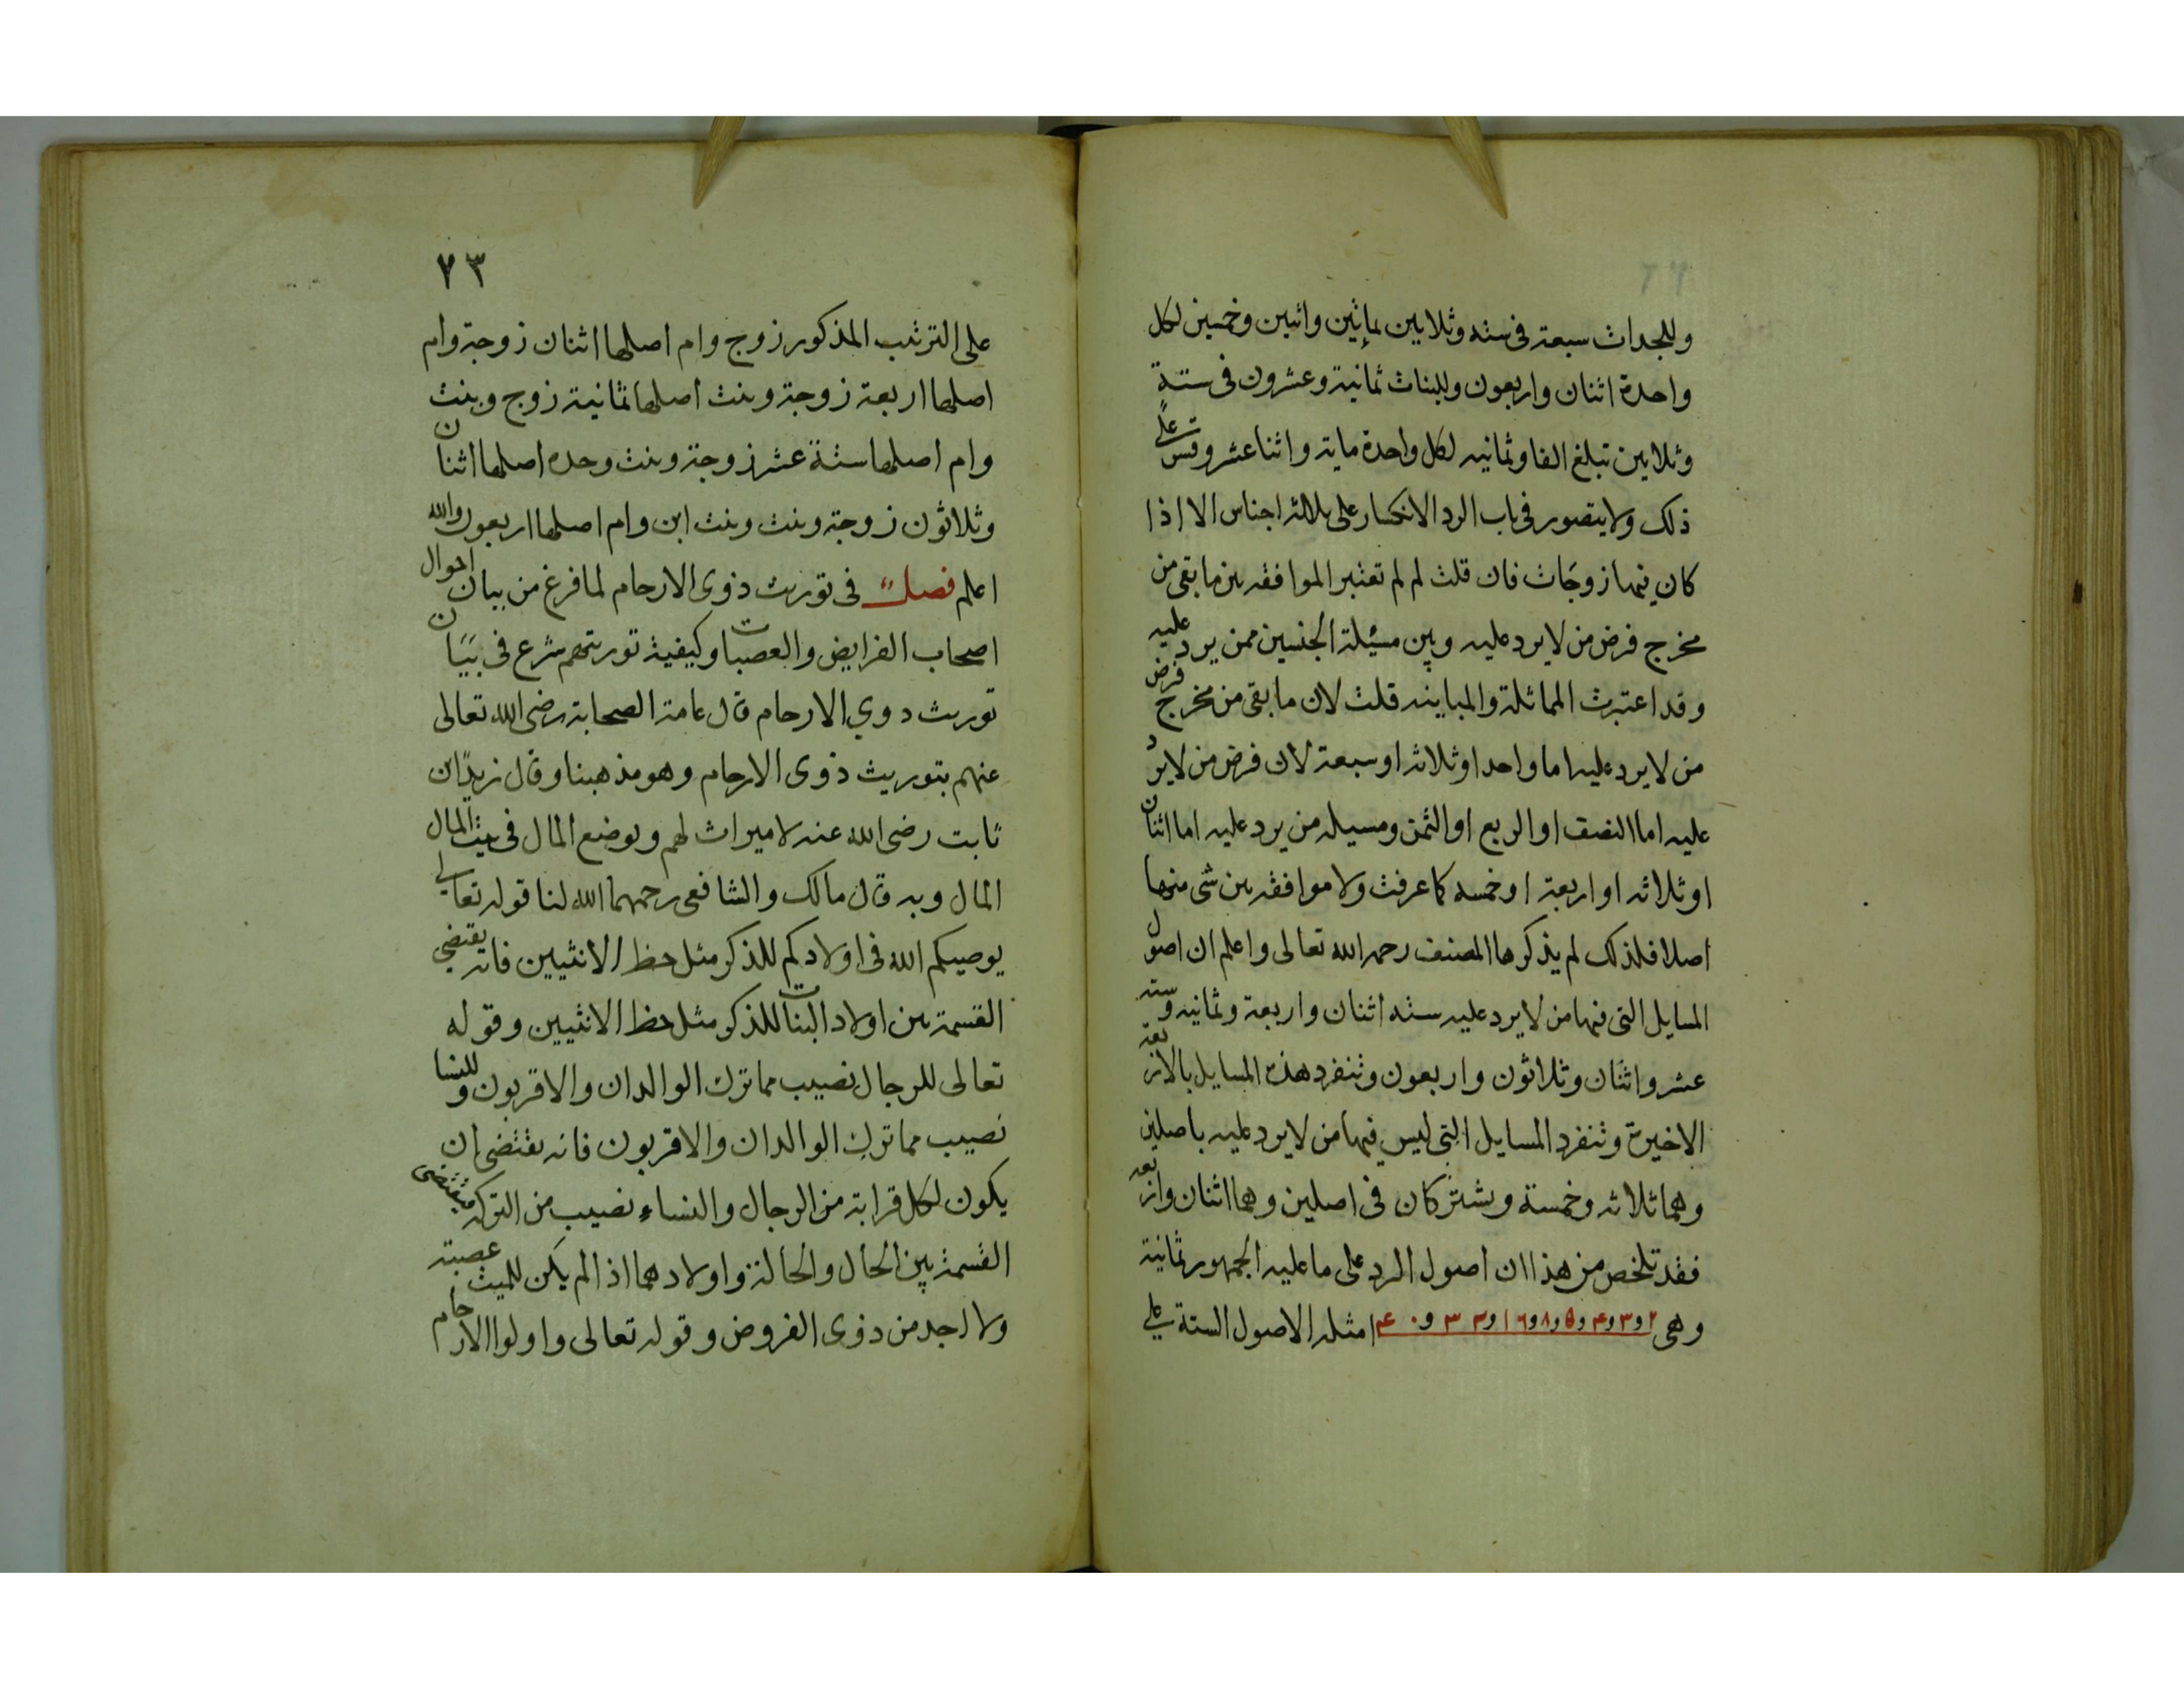 وللجدات سبعة فى سته وثلاثين بمايتين واثنين وخمسين لكل
واحدة اثنان واربعون وللبنات ثمانية وعشرون فى ستة
وثلاثين تبلغ الفا وثمانيه لكل واحدة ماية واثنا عشر وقس على
ذلك ولا يتصور فى باب الرد الانكسار على ثلاثة اجناس الا اذا
كان فيها زوجات فان قلت لم لم تعتبر الموافقه بين ما بقى من
مخرج فرض من لا يرد عليه وبين مسئلة الجنسين ممن يرد عليه
وقد اعتبرت المماثلة والمباينه قلت لان ما بقى من مخرج فرض
من لا يرد عليه اما واحد او ثلاثه او سبعة لان فرض من لا يرد
عليه اما النصف او الربع او الثمن ومسيله من يرد عليه اما اثنان
او ثلاثه او اربعة او خمسه كما عرفت ولا موافقه بين شى منها
اصلا فلذلك لم يذكرها المصنف رحمه الله تعالى واعلم ان اصول
المسايل التى فيها من لا يرد عليه سته اثنان واربعة وثمانيه وسته
عشر واثنان وثلاثون واربعون وتنفرد هذه المسايل بالاربعة
الاخيرة وتنفرد المسايل التى ليس فيها من لا يرد عليه باصلين
وهما ثلاثه وخمسة ويشتركان فى اصلين وهما اثنان واربعه
فقد تلخص من هذا ان اصول الرد على ما عليه الجمهور ثمانية
وهى ٢ و٣ و۴ و۵ و٨ و١٦ و٣٢ و۴٠ امثله الاصول الستة على
٧٣
على الترتيب المذكور زوج وام اصلها اثنان زوجة وام
اصلها اربعة زوجة وبنت اصلها ثمانية زوج وبنت
وام اصلها ستة عشر زوجة وبنت وجده اصلها اثنان
وثلاثون زوجة وبنت وبنت ابن وام اصلها اربعون والله
اعلم فصل فى توريث ذوى الارحام لما فرغ من بيان احوال
اصحاب الفرايض والعصبات وكيفية توريثهم شرع فى بيان
توريث دوي الارحام قال عامة الصحابة رضى الله تعالى
عنهم بتوريث ذوى الارحام وهو مذهبنا وقال زيد ابن
ثابت رضى الله عنه لا ميراث لهم ويوضع المال فى بيت المال
المال وبه قال مالك والشافعى رحمهما الله لنا قوله تعالى
يوصيكم الله فى اولادكم للذكر مثل حظ الانثيين فانه يقتضى
القسمة بين اولاد البنات للذكر مثل حظ الانثيين وقوله
تعالى للرجال نصيب مما ترك الوالدان والاقربون وللنسا
نصيب مما ترك الوالدان والاقربون فانه يقتضى ان
يكون لكل قرابة من الرجال والنساء نصيب من التركة فيقتضى
القسمة بين الخال والخالة واولادهما اذا لم يكن للميت عصبة
ولا احد من ذوى الفروض وقوله تعالى واولوا الارحام